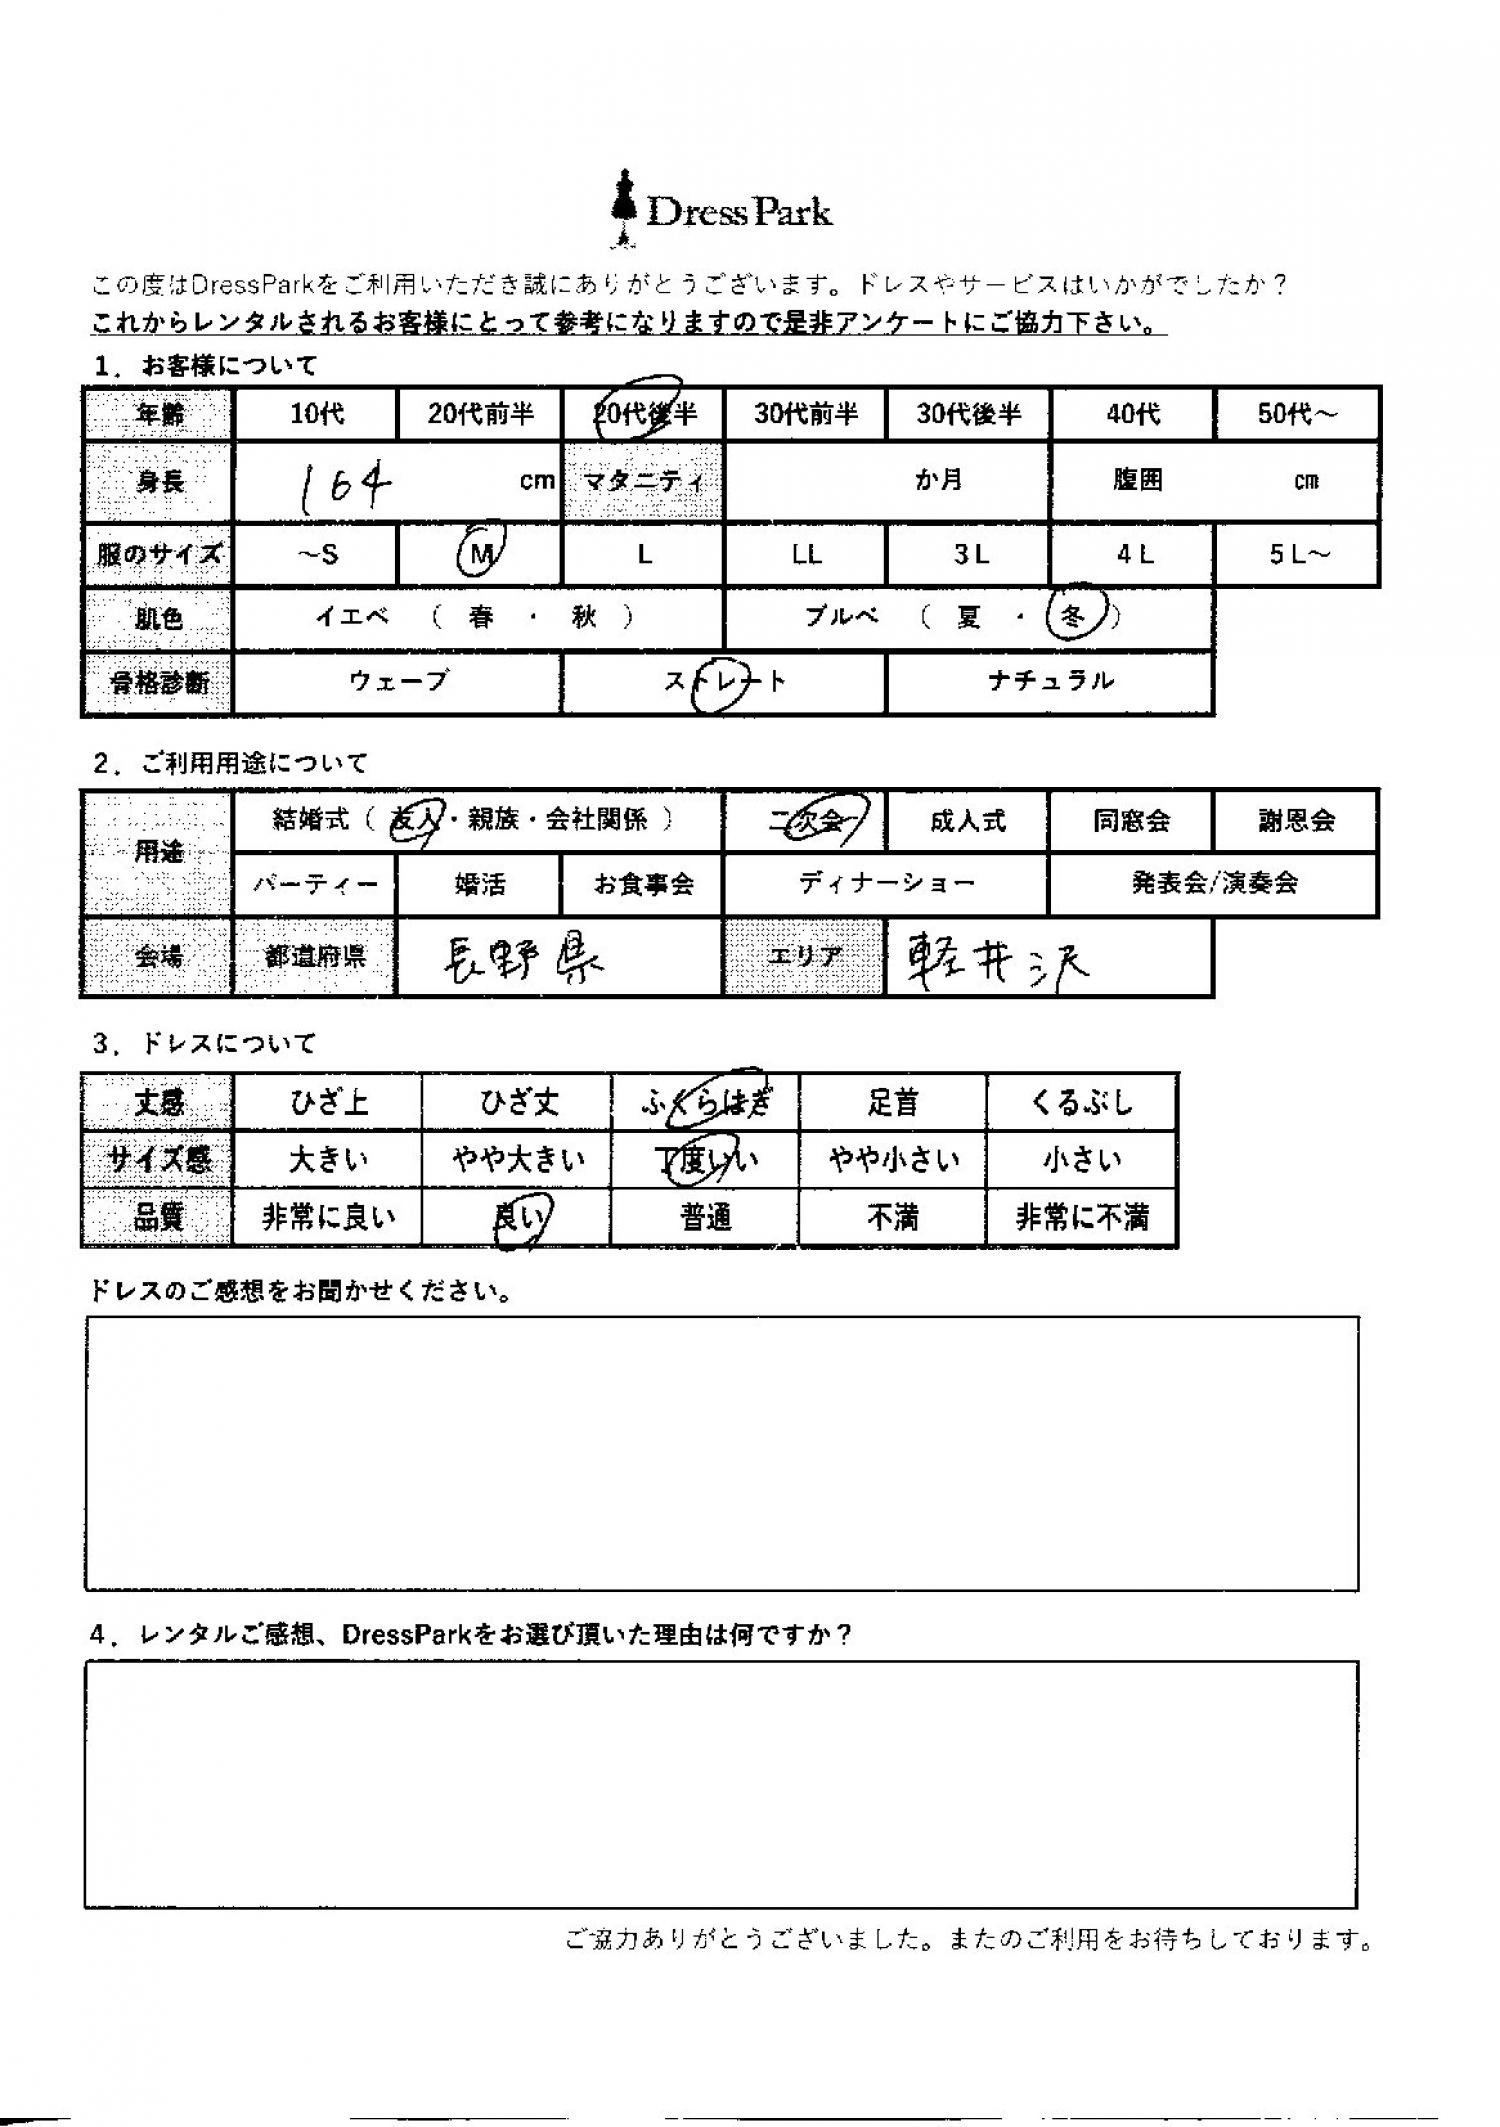 Dress Park
この度はDressParkをご利用いただき誠にありがとうございます。ドレスやサービスはいかがでしたか？
これからレンタルされるお客様にとって参考になりますので是非アンケートにご協力下さい。
1．お客様について
年齢 10代 20代前半 20代後半 30代前半 30代後半 40代 50代～
身長 164 cm マタニティ か月 腹囲 cm
服のサイズ ～S M L LL 3L 4L 5L～
肌色 イエベ （ 春 ・ 秋 ） ブルべ （ 夏 ・ 冬 ）
骨格診断 ウェーブ ストレート ナチュラル
2．ご利用用途について
用途 結婚式（ 友人・親族・会社関係 ） 二次会 成人式 同窓会 謝恩会
パーティー 婚活 お食事会 ディナーショー 発表会/演奏会
会場 都道府県 長野県 エリア 軽井沢
3．ドレスについて
丈感 ひざ上 ひざ丈 ふくらはぎ 足首 くるぶし
サイズ感 大きい やや大きい 丁度いい やや小さい 小さい
品質 非常に良い 良い 普通 不満 非常に不満
ドレスのご感想をお聞かせください。
4．レンタルご感想、DressParkをお選び頂いた理由は何ですか？
ご協力ありがとうございました。またのご利用をお待ちしております。